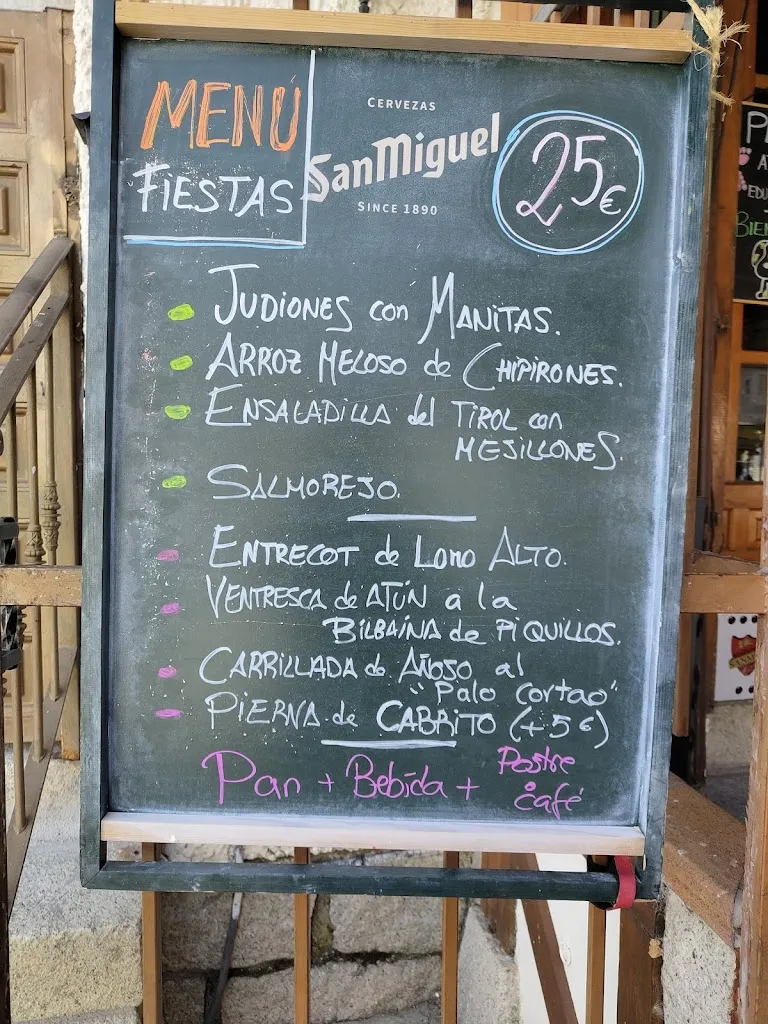 MENÚ
FIESTAS
CERVEZAS
San Miguel
SINCE 1890
25€
JUDIONES con MANITAS.
ARROZ MELOSO de CHIPIRONES.
ENSALADILLA del TIROL con
MEJILLONES.
SALMOREJO.
ENTRECOT de LOMO ALTO.
VENTRESCA de ATÚN a la
BILBAÍNA de PIQUILLOS.
CARRILLADA de AÑOSO al
"Palo Cortao"
PIERNA de CABRITO (+5€)
Pan + Bebida + Postre
o café